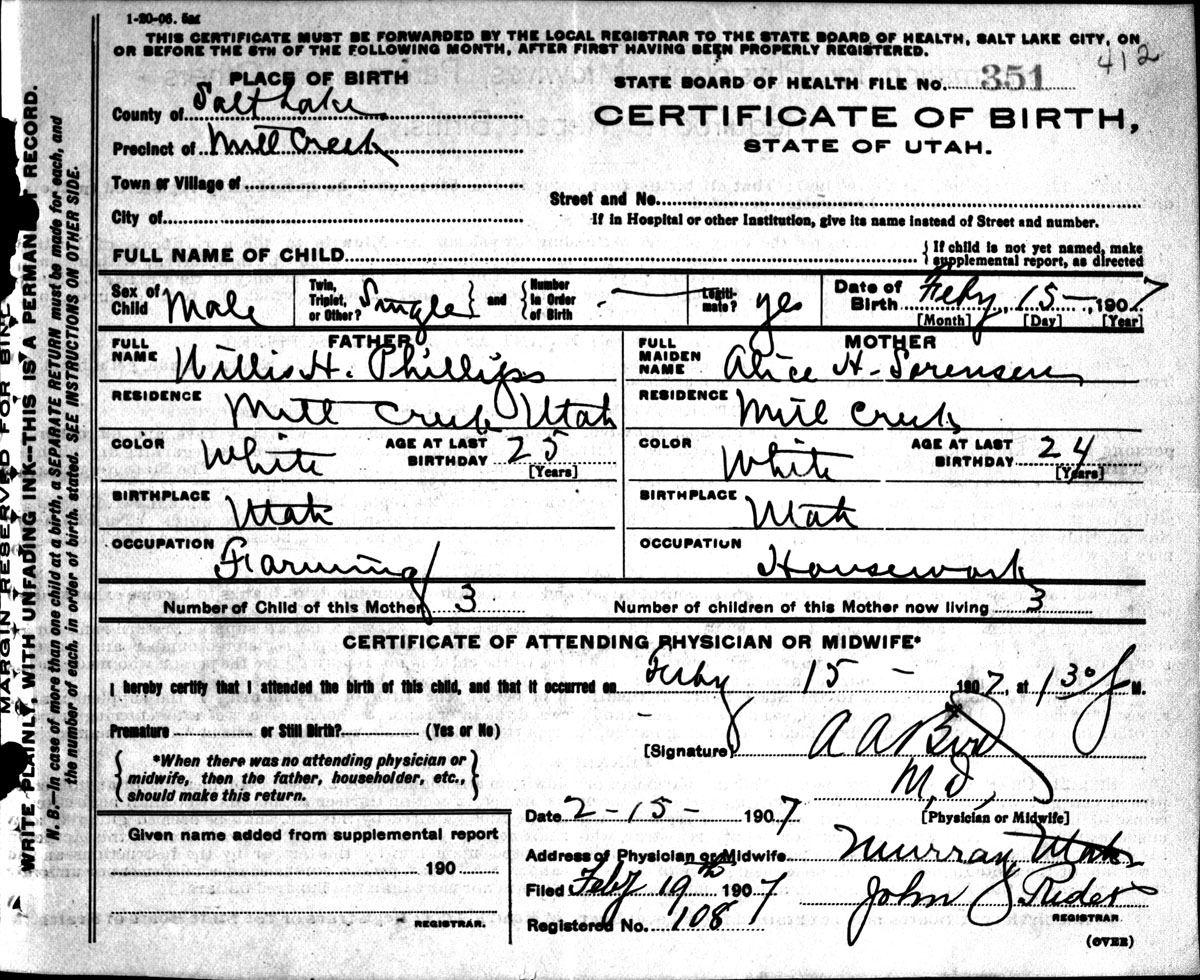 1-20-06. 5m
THIS CERTIFICATE MUST BE FORWARDED BY THE LOCAL REGISTRAR TO THE STATE BOARD OF HEALTH, SALT LAKE CITY, ON
OR BEFORE THE 5TH OF THE FOLLOWING MONTH, AFTER FIRST HAVING BEEN PROPERLY REGISTERED.
412
PLACE OF BIRTH
STATE BOARD OF HEALTH FILE No. 351
County of Salt Lake
CERTIFICATE OF BIRTH,
Precinct of Mill Creek
STATE OF UTAH.
Town or Village of
Street and No.
City of
If in Hospital or other Institution, give its name instead of Street and number.
FULL NAME OF CHILD
{ If child is not yet named, make
supplemental report, as directed
Sex of Child Male
Twin, Triplet, or Other? Single } and { Number in Order of Birth —
Legitimate? yes
Date of Birth Feby 15 — , 1907
[Month] [Day] [Year]
FATHER
MOTHER
FULL NAME Willis H. Phillips
FULL MAIDEN NAME Alice H. Sorensen
RESIDENCE Mill Creek Utah
RESIDENCE Mill Creek
COLOR White AGE AT LAST BIRTHDAY 25 [Years]
COLOR White AGE AT LAST BIRTHDAY 24 [Years]
BIRTHPLACE Utah
BIRTHPLACE Utah
OCCUPATION Farming
OCCUPATION Housework
Number of Child of this Mother 3 Number of children of this Mother now living 3
CERTIFICATE OF ATTENDING PHYSICIAN OR MIDWIFE*
I hereby certify that I attended the birth of this child, and that it occurred on Feby 15 — 1907, at 130 M.
Premature or Still Birth? (Yes or No)
[Signature] A A Bird
M.D,
{ *When there was no attending physician or
midwife, then the father, householder, etc.,
should make this return. }
Date 2-15- 1907
[Physician or Midwife]
Given name added from supplemental report
190
REGISTRAR.
Address of Physician or Midwife Murray Utah
Filed Feby 19th 1907 John
REGISTRAR.
Registered No. 108
(OVER)
MARGIN RESERVED FOR
WRITE PLAINLY, WITH UNFADING INK—THIS IS A PERMANENT RECORD.
N. B.—In case of more than one child at a birth, a SEPARATE RETURN must be made for each, and
the number of each, in order of birth, stated. SEE INSTRUCTIONS ON OTHER SIDE.